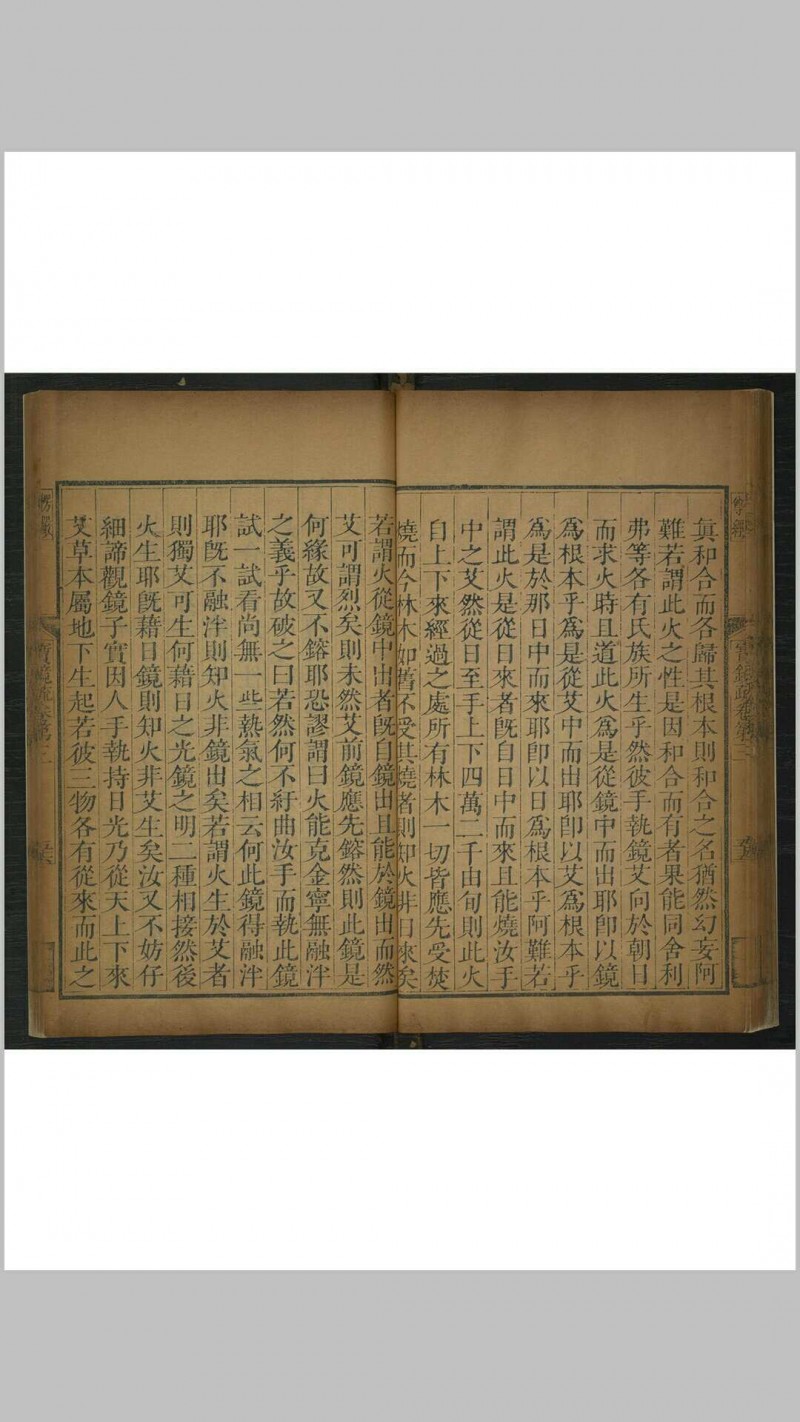 眞和合而各歸其根本則和合之名猶然幻妄阿
難若謂此火之性是因和合而有者果能同舍利
弗等各有氏族所生乎然彼手執鏡艾向於朝日
而求火時且道此火爲是從鏡中而出耶卽以鏡
爲根本乎爲是從艾中而出耶卽以艾爲根本乎
爲是於那日中而來耶卽以日爲根本乎阿難若
謂此火是從日來者旣自日中而來且能燒汝手
中之艾然從日至手上下四萬二千由旬則此火
自上下來經過之處所有林木一切皆應先受焚
燒而今林木如舊不受其燒者則知火非日來矣
若謂火從鏡中出者旣自鏡出且能於鏡出而然
艾可謂烈矣則未然艾前鏡應先鎔然則此鏡是
何緣故又不鎔耶恐謬謂曰火能克金寧無融泮
之義乎故破之曰若然何不紆曲汝手而執此鏡
試一試看尚無一些熱氣之相云何此鏡得融泮
耶旣不融泮則知火非鏡出矣若謂火生於艾者
則獨艾可生何藉日之光鏡之明二種相接然後
火生耶旣藉日鏡則知火非艾生矣汝又不妨仔
細諦觀鏡子實因人手執持日光乃從天上下來
艾草本屬地下生起若彼三物各有從來而此之
楞嚴
寶鏡疏卷第三